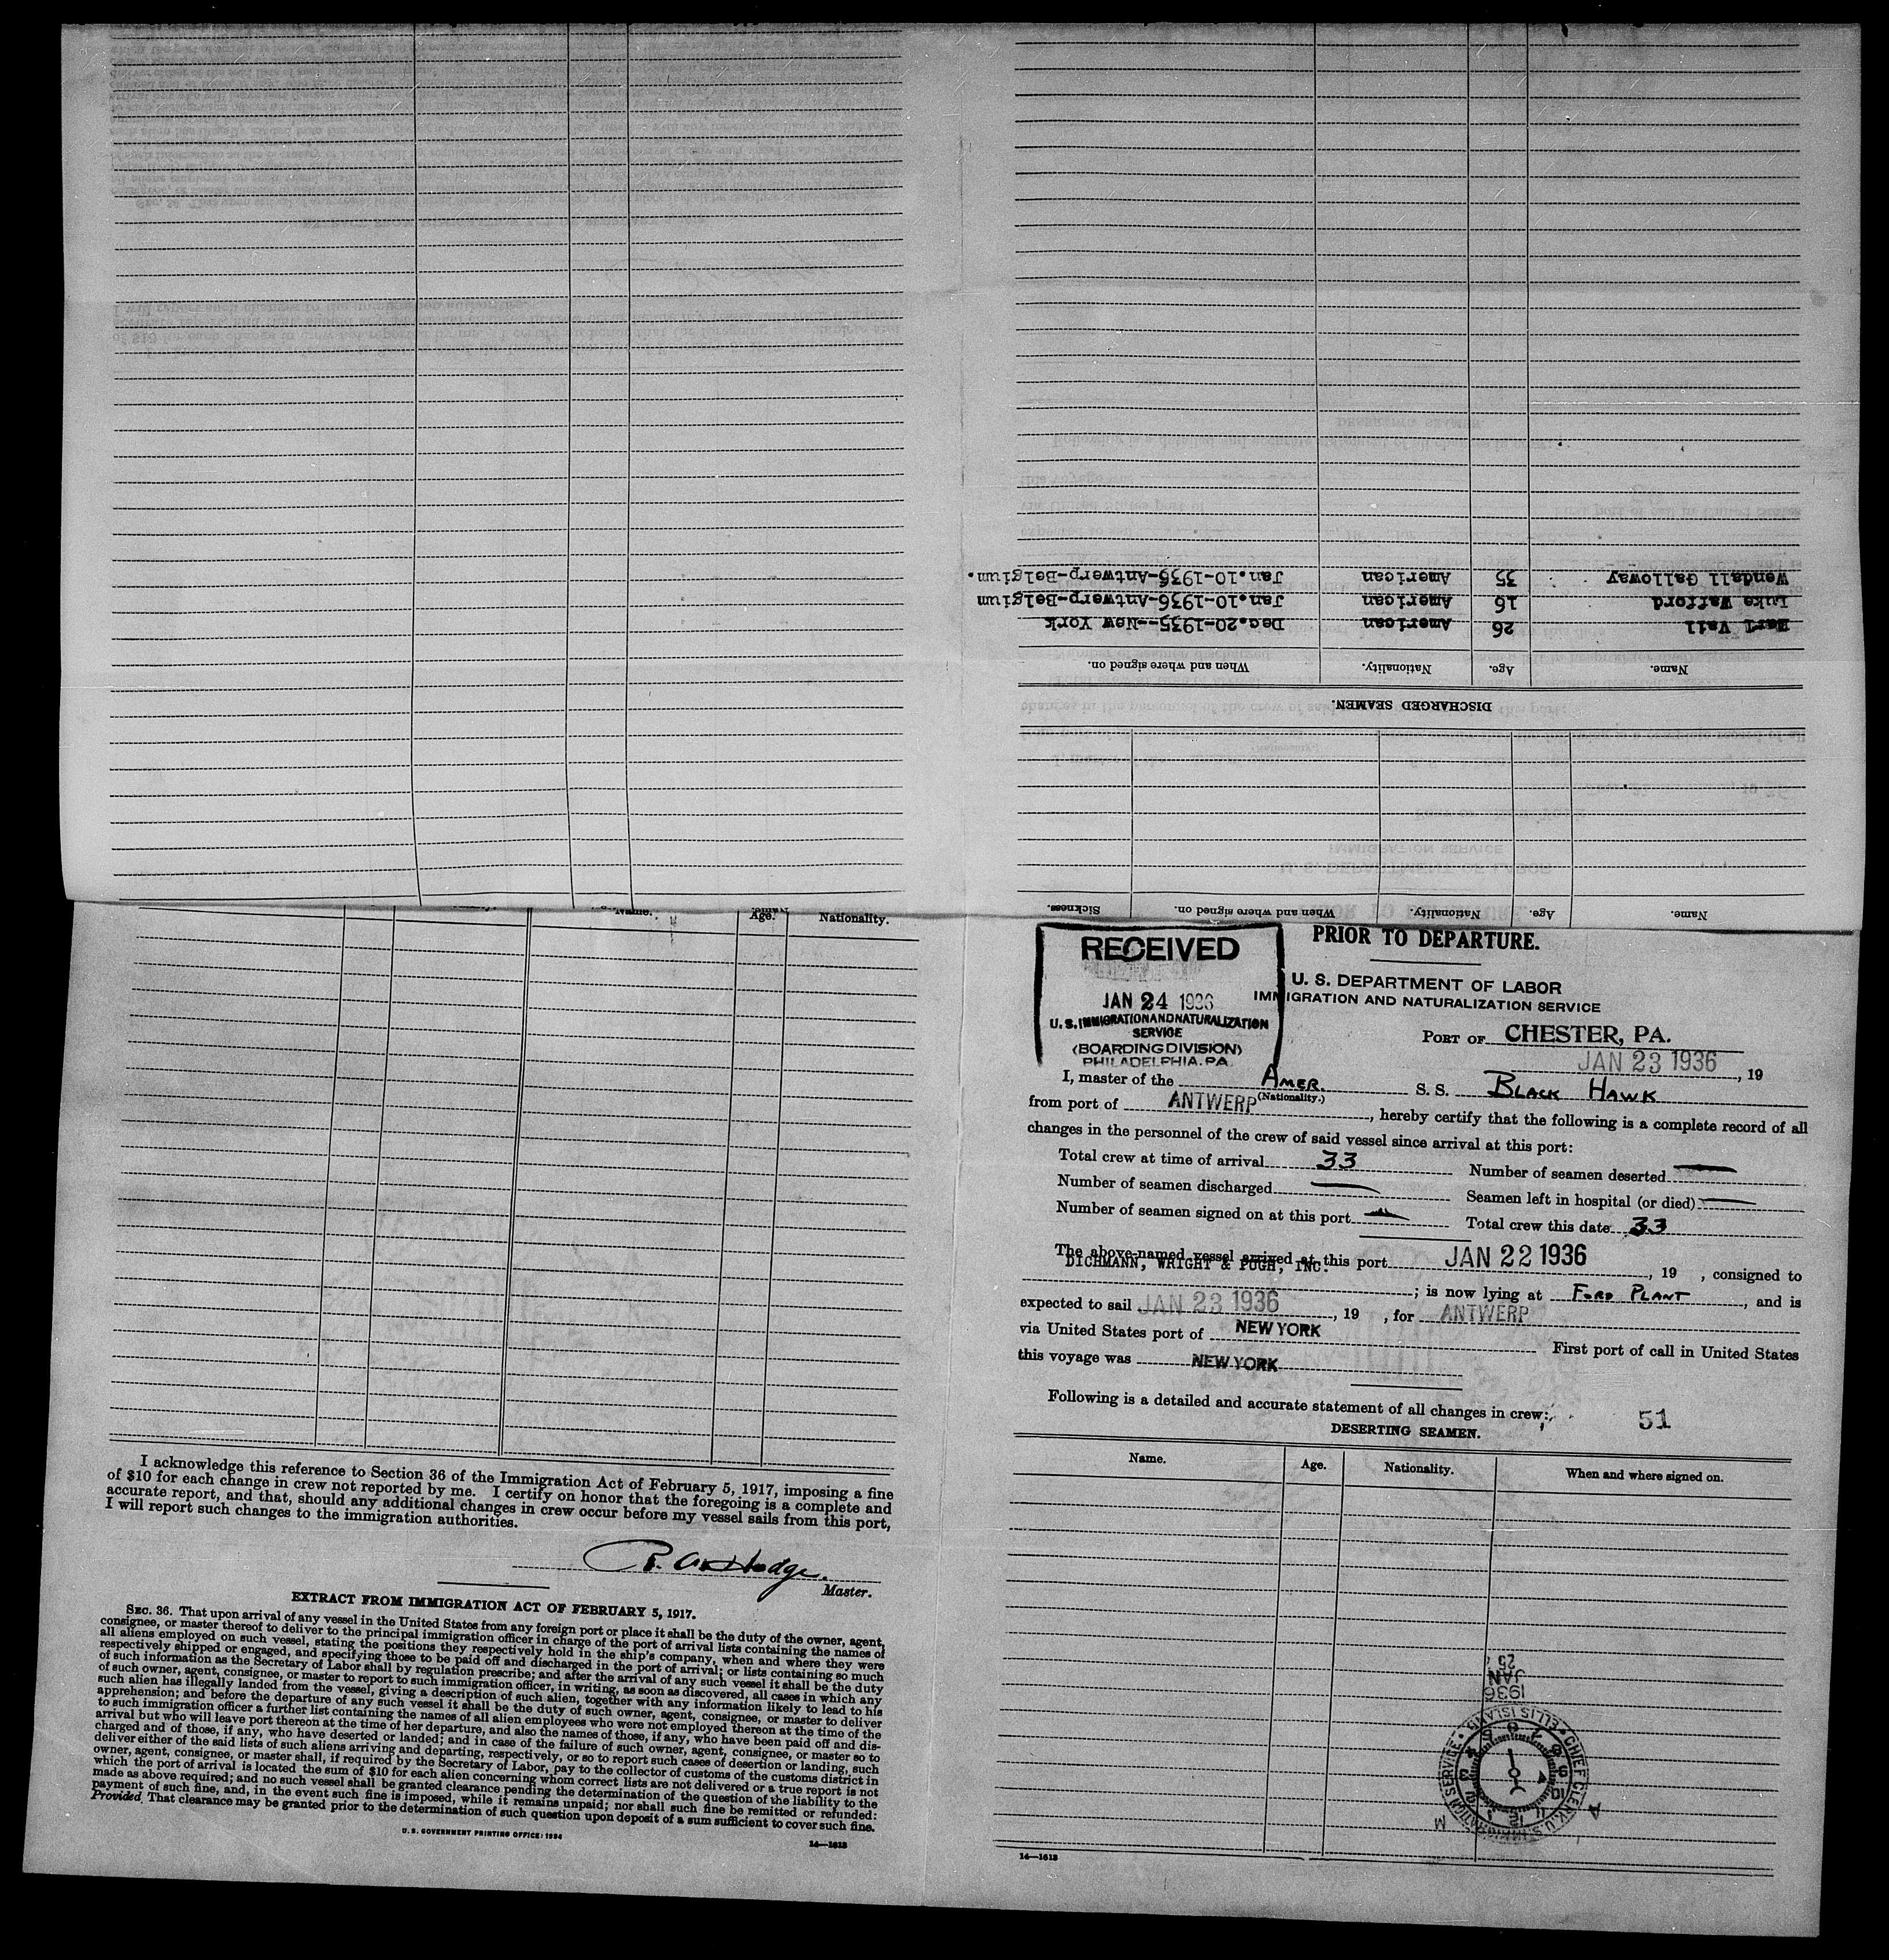 Name.
Age.
Nationality.
When and where signed on.
Sickness.
DISCHARGED SEAMEN.
Name.
Age.
Nationality.
When and where signed on.
Earl Vail 26 American Dec.20-1935--New York
Luke Wafford 16 American Jan.10-1936-Antwerp-Belgium
Wendall Galloway 35 American Jan.10-1936-Antwerp-Belgium.
Name.
Age.
Nationality.
I acknowledge this reference to Section 36 of the Immigration Act of February 5, 1917, imposing a fine
of $10 for each change in crew not reported by me. I certify on honor that the foregoing is a complete and
accurate report, and that, should any additional changes in crew occur before my vessel sails from this port,
I will report such changes to the immigration authorities.
Master.
EXTRACT FROM IMMIGRATION ACT OF FEBRUARY 5, 1917.
SEC. 36. That upon arrival of any vessel in the United States from any foreign port or place it shall be the duty of the owner, agent,
consignee, or master thereof to deliver to the principal immigration officer in charge of the port of arrival lists containing the names of
all aliens employed on such vessel, stating the positions they respectively hold in the ship's company, when and where they were
respectively shipped or engaged, and specifying those to be paid off and discharged in the port of arrival; or lists containing so much
of such information as the Secretary of Labor shall by regulation prescribe; and after the arrival of any such vessel it shall be the duty
of such owner, agent, consignee, or master to report to such immigration officer, in writing, as soon as discovered, all cases in which any
such alien has illegally landed from the vessel, giving a description of such alien, together with any information likely to lead to his
apprehension; and before the departure of any such vessel it shall be the duty of such owner, agent, consignee, or master to deliver
to such immigration officer a further list containing the names of all alien employees who were not employed thereon at the time of the
arrival but who will leave port thereon at the time of her departure, and also the names of those, if any, who have been paid off and dis-
charged and of those, if any, who have deserted or landed; and in case of the failure of such owner, agent, consignee, or master so to
deliver either of the said lists of such aliens arriving and departing, respectively, or so to report such cases of desertion or landing, such
owner, agent, consignee, or master shall, if required by the Secretary of Labor, pay to the collector of customs of the customs district in
which the port of arrival is located the sum of $10 for each alien concerning whom correct lists are not delivered or a true report is not
made as above required; and no such vessel shall be granted clearance pending the determination of the question of the liability to the
payment of such fine, and, in the event such fine is imposed, while it remains unpaid; nor shall such fine be remitted or refunded:
Provided, That clearance may be granted prior to the determination of such question upon deposit of a sum sufficient to cover such fine.
U. S. GOVERNMENT PRINTING OFFICE: 1934
14—1613
RECEIVED
JAN 24 1936
U. S. IMMIGRATION AND NATURALIZATION
SERVICE
(BOARDING DIVISION)
PHILADELPHIA. PA.
PRIOR TO DEPARTURE.
U. S. DEPARTMENT OF LABOR
IMMIGRATION AND NATURALIZATION SERVICE
PORT OF CHESTER, PA.
JAN 23 1936, 19
I, master of the AMER. S. S. BLACK HAWK
(Nationality.)
from port of ANTWERP, hereby certify that the following is a complete record of all
changes in the personnel of the crew of said vessel since arrival at this port:
Total crew at time of arrival 33 Number of seamen deserted —
Number of seamen discharged — Seamen left in hospital (or died) —
Number of seamen signed on at this port — Total crew this date 33
The above-named vessel arrived at this port JAN 22 1936, 19 , consigned to
DICHMANN, WRIGHT & PUGH, INC. ; is now lying at FORD PLANT, and is
expected to sail JAN 23 1936, 19 , for ANTWERP
via United States port of NEW YORK First port of call in United States
this voyage was NEW YORK
Following is a detailed and accurate statement of all changes in crew:
51
DESERTING SEAMEN.
Name.
Age.
Nationality.
When and where signed on.
1936
JAN
25
CHIEF CLERK U. S. IMMIGRATION SERVICE ELLIS ISLAND
A
M
14—1613